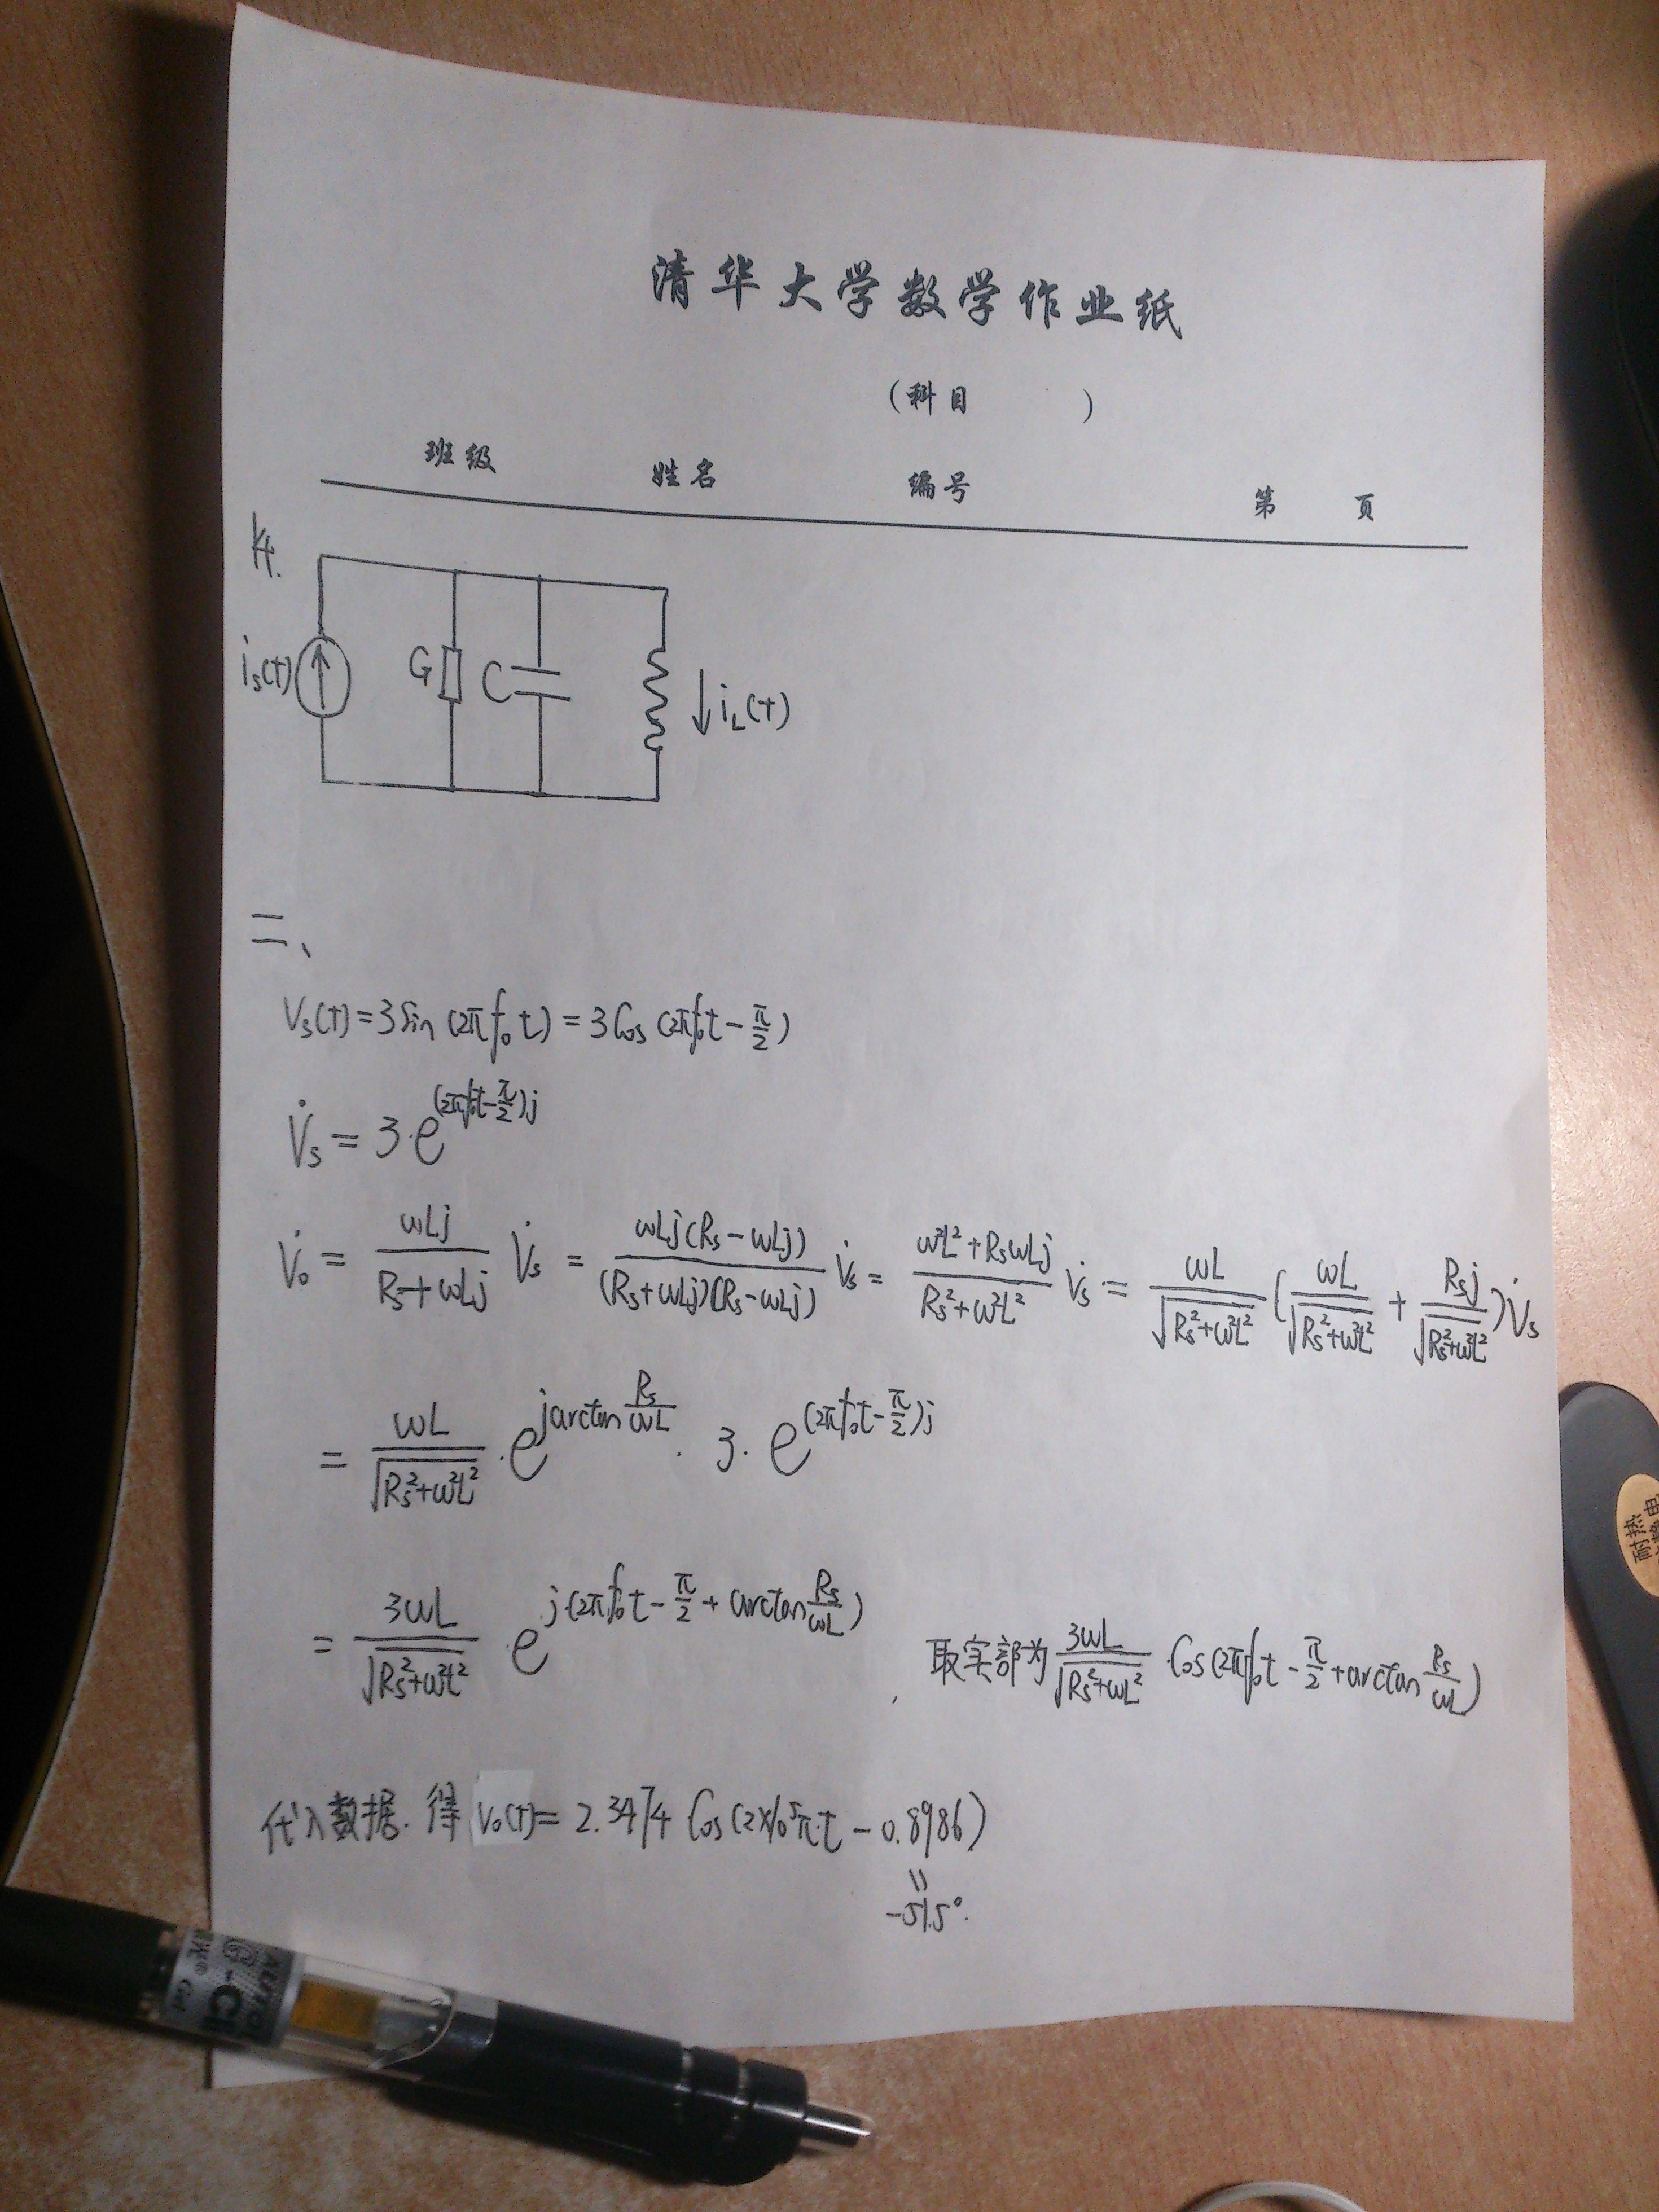 清华大学数学作业纸
(科目 )
班级 姓名 编号 第 页
4.
is(t) G C iL(t)
二、
Vs(t)=3Sin(2πf₀t)=3Cos(2πf₀t-π/2)
V̇s=3·e^((2πf₀t-π/2)j)
V̇o=ωLj/(Rs+ωLj) V̇s=ωLj(Rs-ωLj)/((Rs+ωLj)(Rs-ωLj)) V̇s=(ω²L²+RsωLj)/(Rs²+ω²L²) V̇s=ωL/√(Rs²+ω²L²) (ωL/√(Rs²+ω²L²)+Rsj/√(Rs²+ω²L²))V̇s
=ωL/√(Rs²+ω²L²)·e^(jarctan Rs/ωL)·3·e^((2πf₀t-π/2)j)
=3ωL/√(Rs²+ω²L²)·e^(j(2πf₀t-π/2+arctan Rs/ωL)), 取实部为 3ωL/√(Rs²+ωL²) Cos(2πf₀t-π/2+arctan Rs/ωL)
代入数据.得 Vo(t)=2.3474 Cos(2×10⁵πt-0.8986)
=
-51.5°.
耐热